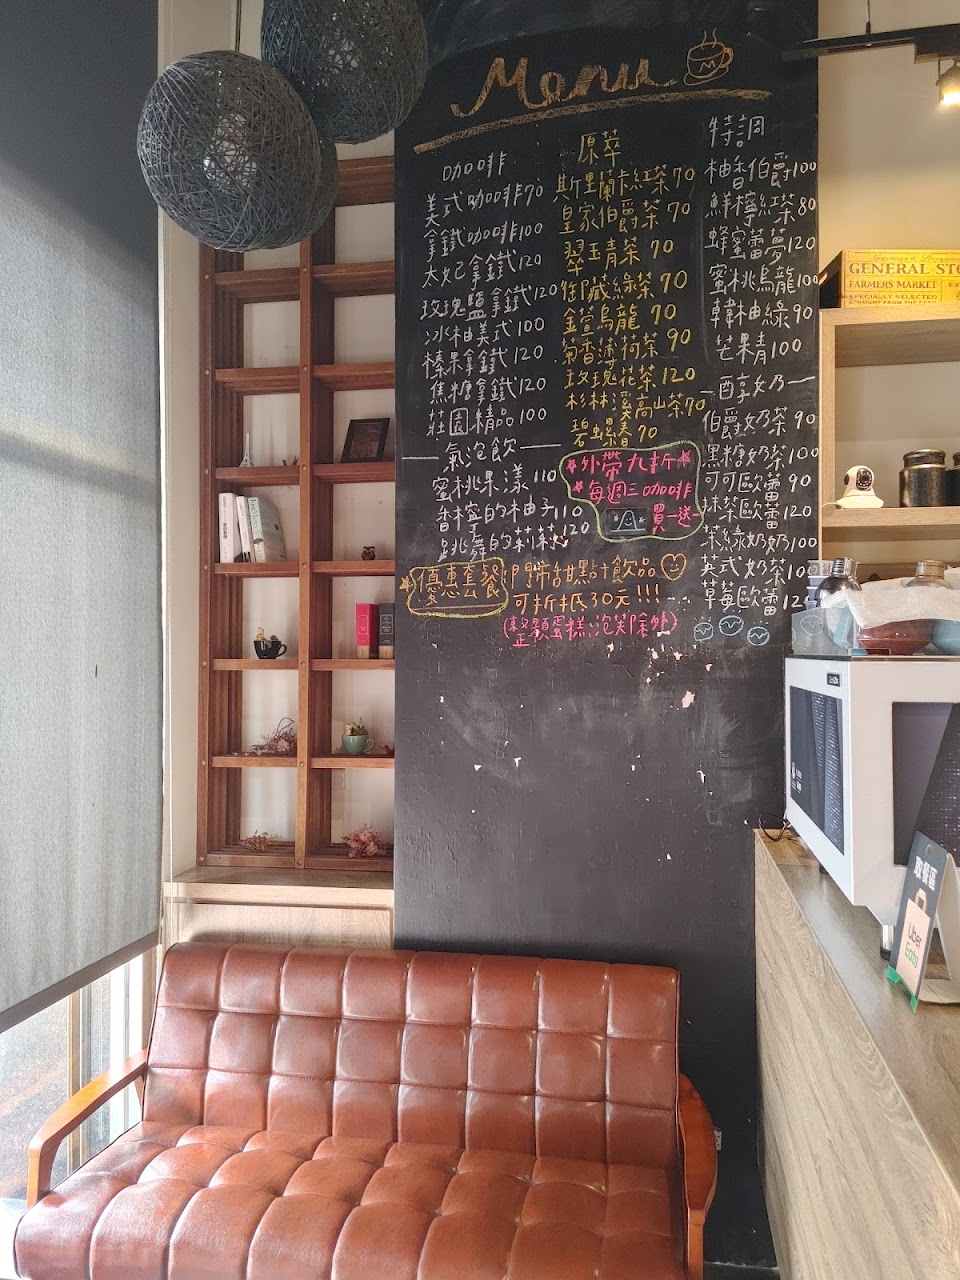 Menu
咖啡
美式咖啡70
拿鐵咖啡100
太妃拿鐵120
玫瑰鹽拿鐵120
冰柚美式100
榛果拿鐵120
焦糖拿鐵120
莊園精品100
氣泡飲
蜜桃果漾110
香檸的柚子110
跳舞的茉莉120
原萃
斯里蘭卡紅茶70
皇家伯爵茶70
翠玉青茶70
御藏綠茶70
金萱烏龍70
菊香薄荷茶90
玫瑰花茶120
杉林溪高山茶70
碧螺春70
外帶九折
每週三咖啡
買一送一
特調
柚香伯爵100
鮮檸紅茶80
蜂蜜蕾夢120
蜜桃烏龍100
韓柚綠90
芒果青100
醇奶
伯爵奶茶90
黑糖奶茶100
可可歐蕾90
抹茶歐蕾120
茶綠奶奶100
英式奶茶10
草莓歐蕾12
優惠套餐 門市甜點+飲品
可折抵30元!!!
(整顆蛋糕、泡芙除外)
GENERAL STO
FARMERS MARKET
SPECIALLY SELECTED
取餐區
Uber
Eats